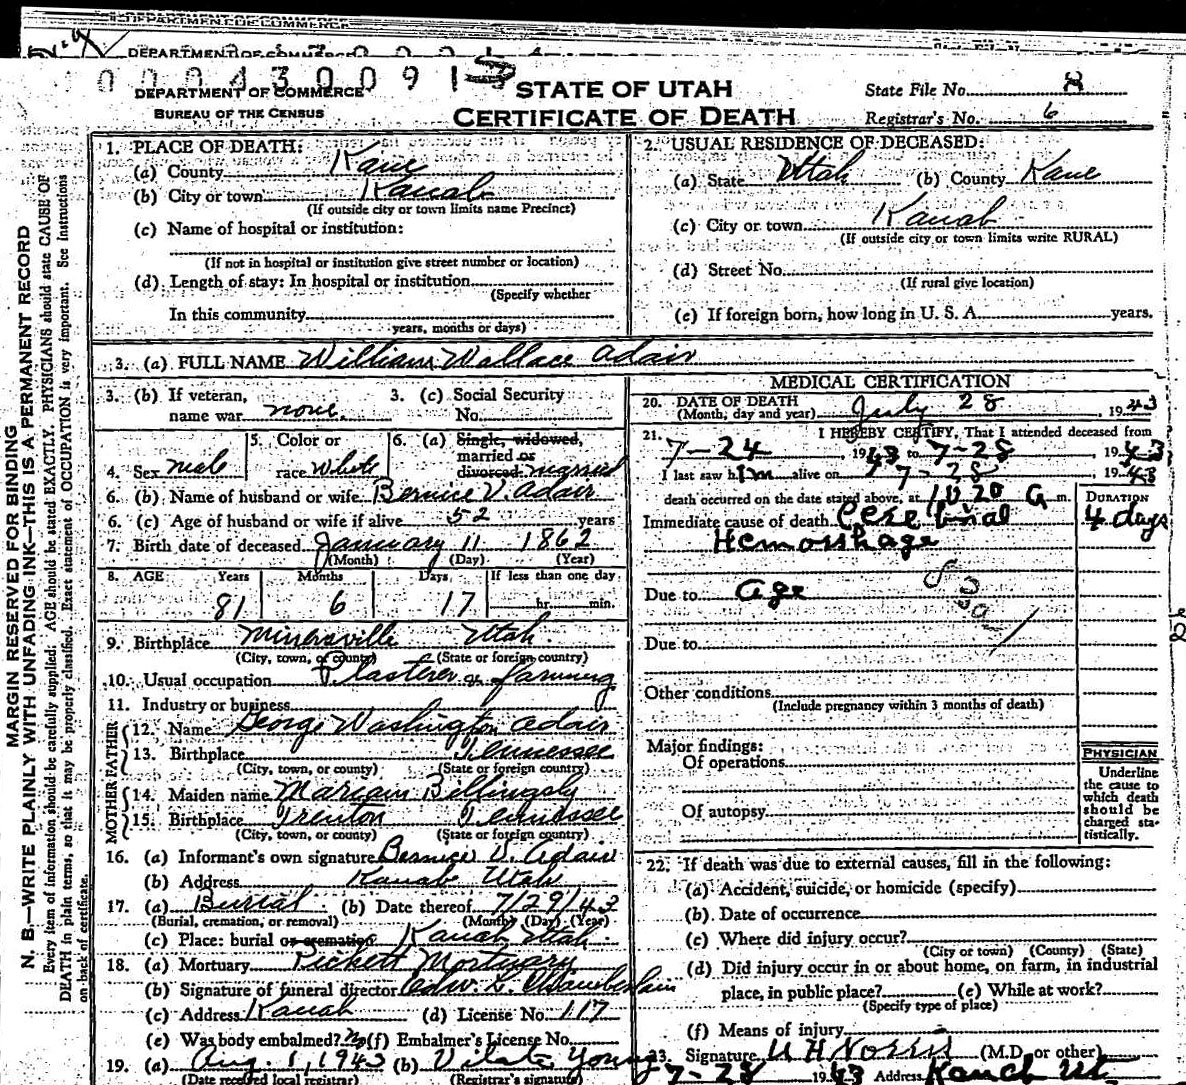 DEPARTMENT OF COMMERCE
DEPARTMENT OF COMMERCE
0 0 0 4 3 0 0 9 1
DEPARTMENT OF COMMERCE
BUREAU OF THE CENSUS
STATE OF UTAH
CERTIFICATE OF DEATH
State File No. 8
Registrar's No. 6
MARGIN RESERVED FOR BINDING
N. B—WRITE PLAINLY WITH UNFADING INK—THIS IS A PERMANENT RECORD
Every item of information should be carefully supplied. AGE should be stated EXACTLY. PHYSICIANS should state CAUSE OF
DEATH in plain terms, so that it may be properly classified. Exact statement of OCCUPATION is very important. See Instructions
on back of certificate.
1. PLACE OF DEATH:
(a) County Kane
(b) City or town Kanab
(If outside city or town limits name Precinct)
(c) Name of hospital or institution:
(If not in hospital or institution give street number or location)
(d) Length of stay: In hospital or institution
(Specify whether
In this community
years, months or days)
2. USUAL RESIDENCE OF DECEASED:
(a) State Utah (b) County Kane
(c) City or town Kanab
(If outside city or town limits write RURAL)
(d) Street No.
(If rural give location)
(e) If foreign born, how long in U. S. A. years.
3. (a) FULL NAME William Wallace Adair
3. (b) If veteran, name war none.
3. (c) Social Security No.
4. Sex male
5. Color or race White
6. (a) Single, widowed, married or divorced married
6. (b) Name of husband or wife Bernice V. Adair
6. (c) Age of husband or wife if alive 52 years
7. Birth date of deceased January 11 1862
(Month) (Day) (Year)
8. AGE Years Months Days If less than one day
81 6 17 hr. min.
9. Birthplace Minersville Utah
(City, town, or county) (State or foreign country)
10. Usual occupation Plasterer or farming
11. Industry or business
FATHER
12. Name George Washington Adair
13. Birthplace Tennessee
(City, town, or county) (State or foreign country)
MOTHER
14. Maiden name Mariam Billingsly
15. Birthplace Trenton Tennessee
(City, town, or county) (State or foreign country)
16. (a) Informant's own signature Bernice V. Adair
(b) Address Kanab Utah
17. (a) Burial (b) Date thereof 7/29/43
(Burial, cremation, or removal) (Month) (Day) (Year)
(c) Place: burial or cremation Kanab, Utah
18. (a) Mortuary Pickett Mortuary
(b) Signature of funeral director Edw. L. Chamberlain
(c) Address Kanab (d) License No. 117
(e) Was body embalmed? No (f) Embalmer's License No.
19. (a) Aug. 1, 1943 (b) Vilate Young
(Date received local registrar) (Registrar's signature)
MEDICAL CERTIFICATION
20. DATE OF DEATH
(Month, day and year) July 28, 1943
21. I HEREBY CERTIFY, That I attended deceased from
7-24, 1943 to 7-28 1943
I last saw him alive on 7-28 1943
death occurred on the date stated above, at 10 20 a m.
DURATION
Immediate cause of death Cerebral 4 days
Hemorrhage
Due to age
Due to
Other conditions
(Include pregnancy within 3 months of death)
Major findings:
Of operations
Of autopsy
PHYSICIAN
Underline
the cause to
which death
should be
charged sta-
tistically.
22. If death was due to external causes, fill in the following:
(a) Accident, suicide, or homicide (specify)
(b) Date of occurrence
(c) Where did injury occur?
(City or town) (County) (State)
(d) Did injury occur in or about home, on farm, in industrial
place, in public place? (e) While at work?
(Specify type of place)
(f) Means of injury
23. Signature (M.D. or other)
7-28 1943 Address Kanab Ut.